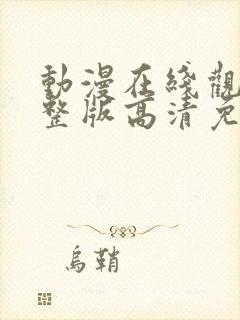 動漫在綫觀
整版高清免
烏鞘